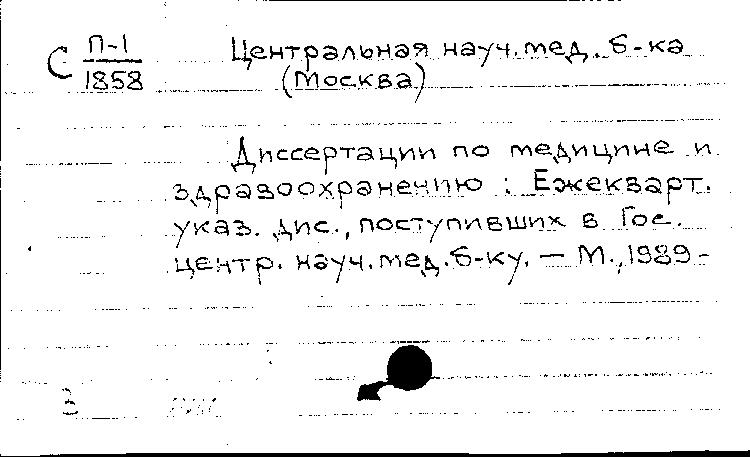 С П-1 Центральная науч. мед. б-ка
1858 (Москва)
Диссертации по медицине и
здравоохранению : Ежекварт.
указ. дис., поступивших в Гос.
центр. науч. мед. б-ку. — М., 1989 -
3